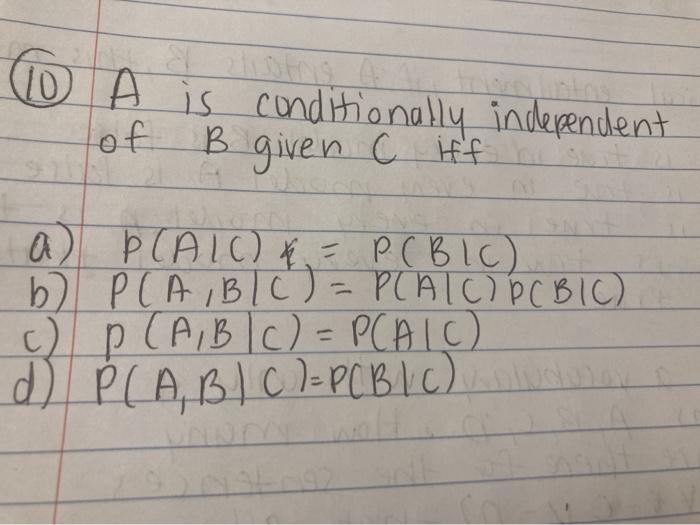 10 A is conditionally independent
of B given C iff
a) P(A|C) = P(B|C)
b) P(A,B|C) = P(A|C)P(B|C)
c) P(A,B|C) = P(A|C)
d) P(A,B|C)=P(B|C)